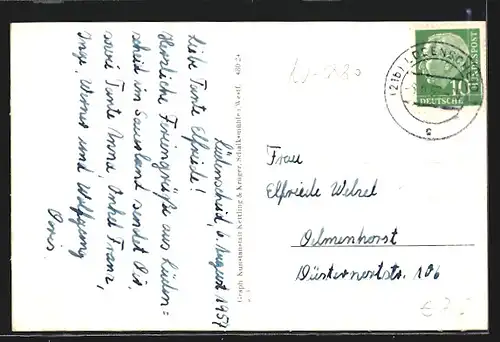 Lüdenscheid, 6. August 1957
Liebe Tante Elfriede!
Herzliche Feriengrüße aus Lüden=
scheid im Sauerland sendet Dir,
sowie Tante Anna, Onkel Franz,
Inge, Werner und Wolfgang
Doris.
Graph. Kunstanstalt Kettling & Krüger, Schalksmühle i. Westf.
(21b) LÜDENSCHEID
g
10
DEUTSCHE
BUNDESPOST
Frau
Elfriede Welzel
Delmenhorst
Düsternortstr. 106